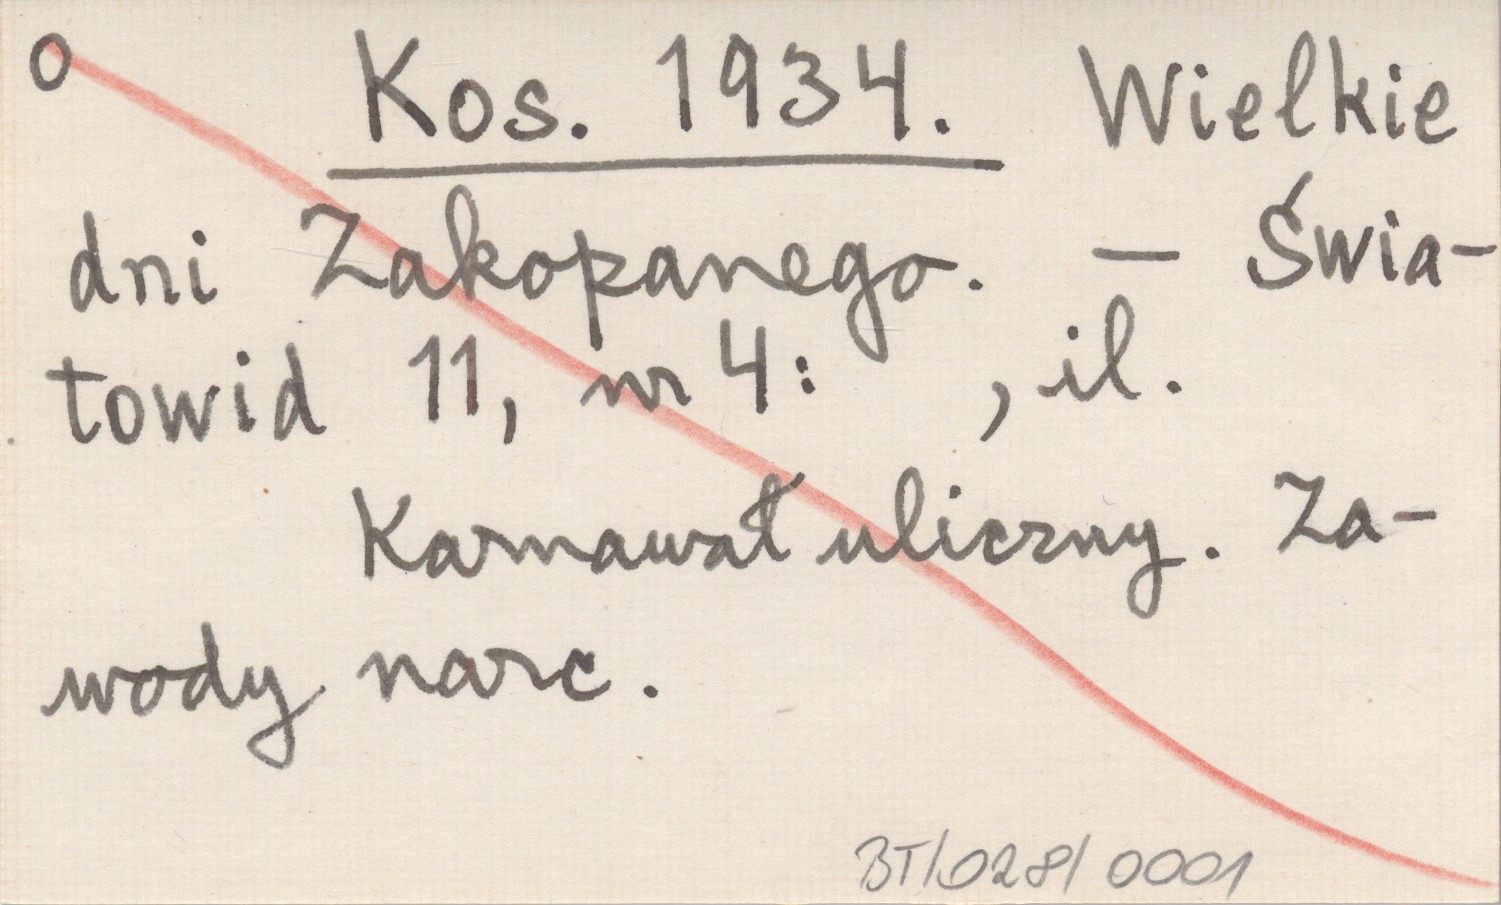 o Kos. 1934. Wielkie
dni Zakopanego. — Świa-
towid 11, nr 4: , il.
Karnawał uliczny. Za-
wody narc.
BT/028/0001